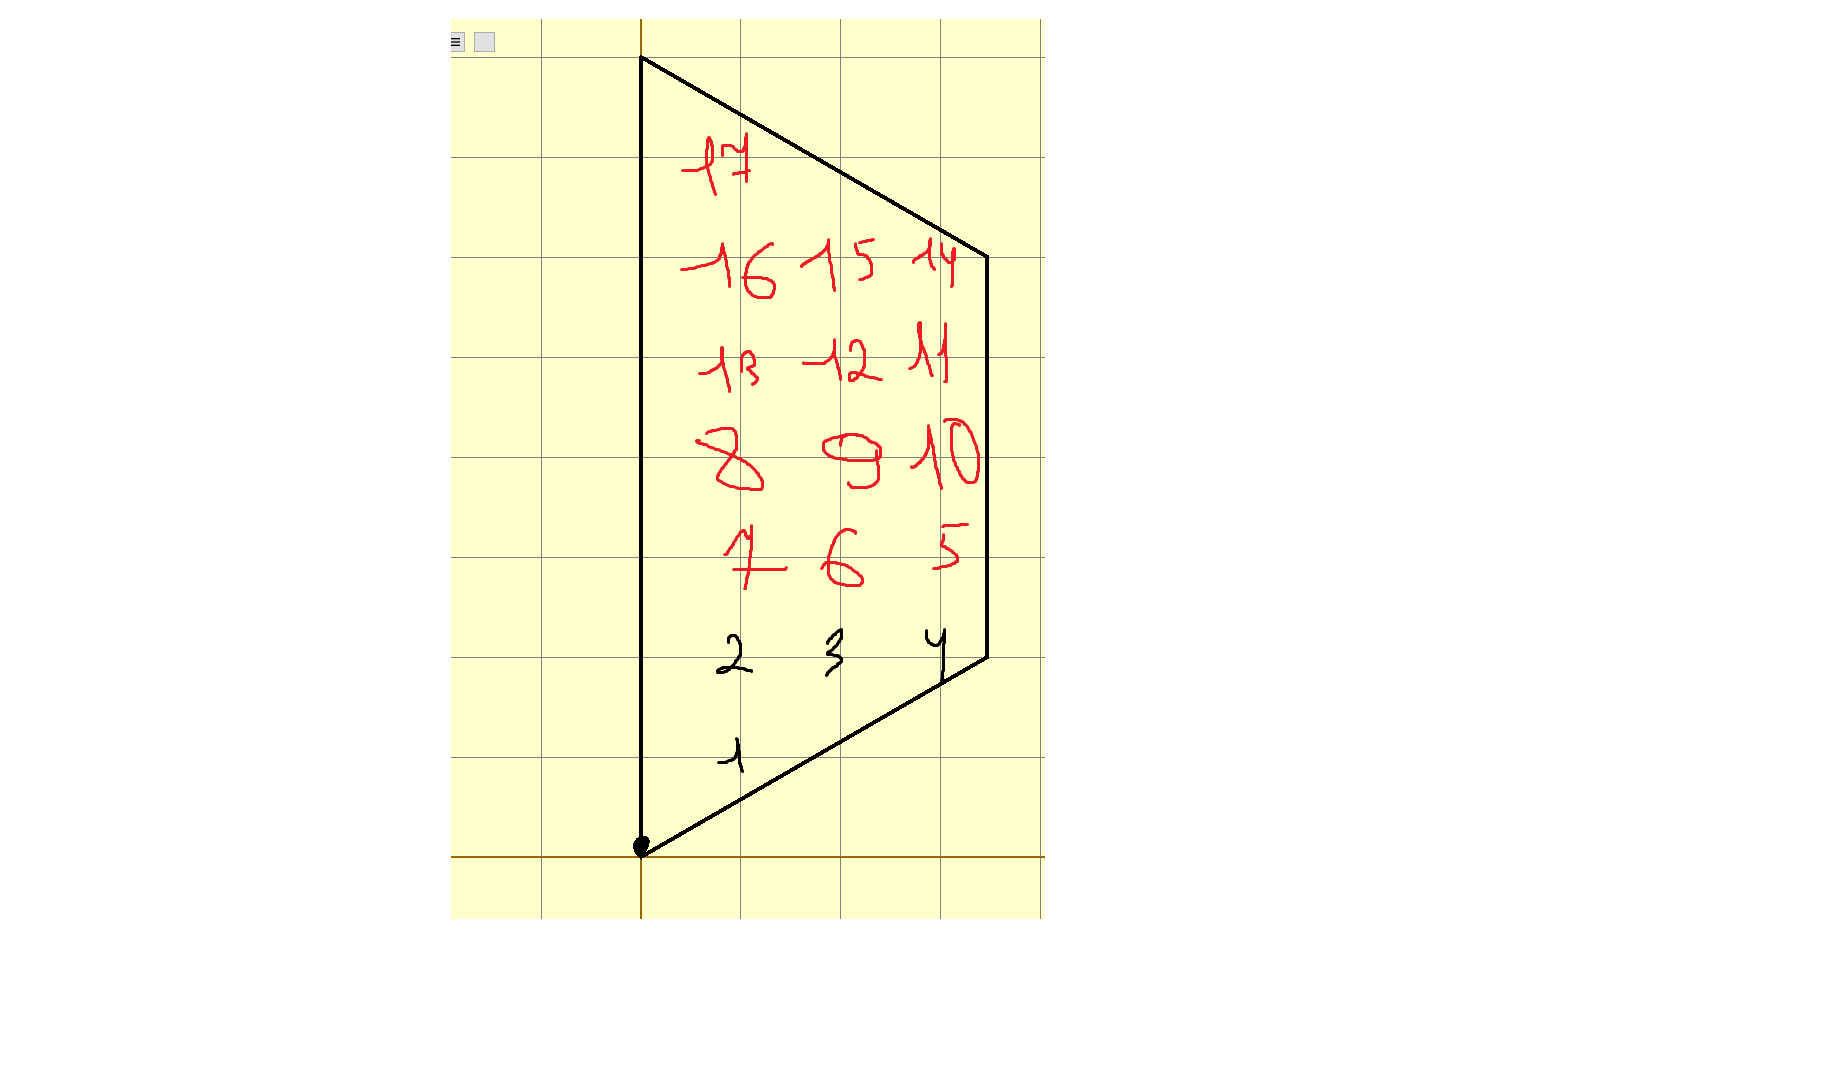 17
16 15 14
13 12 11
8 9 10
7 6 5
2 3 4
1